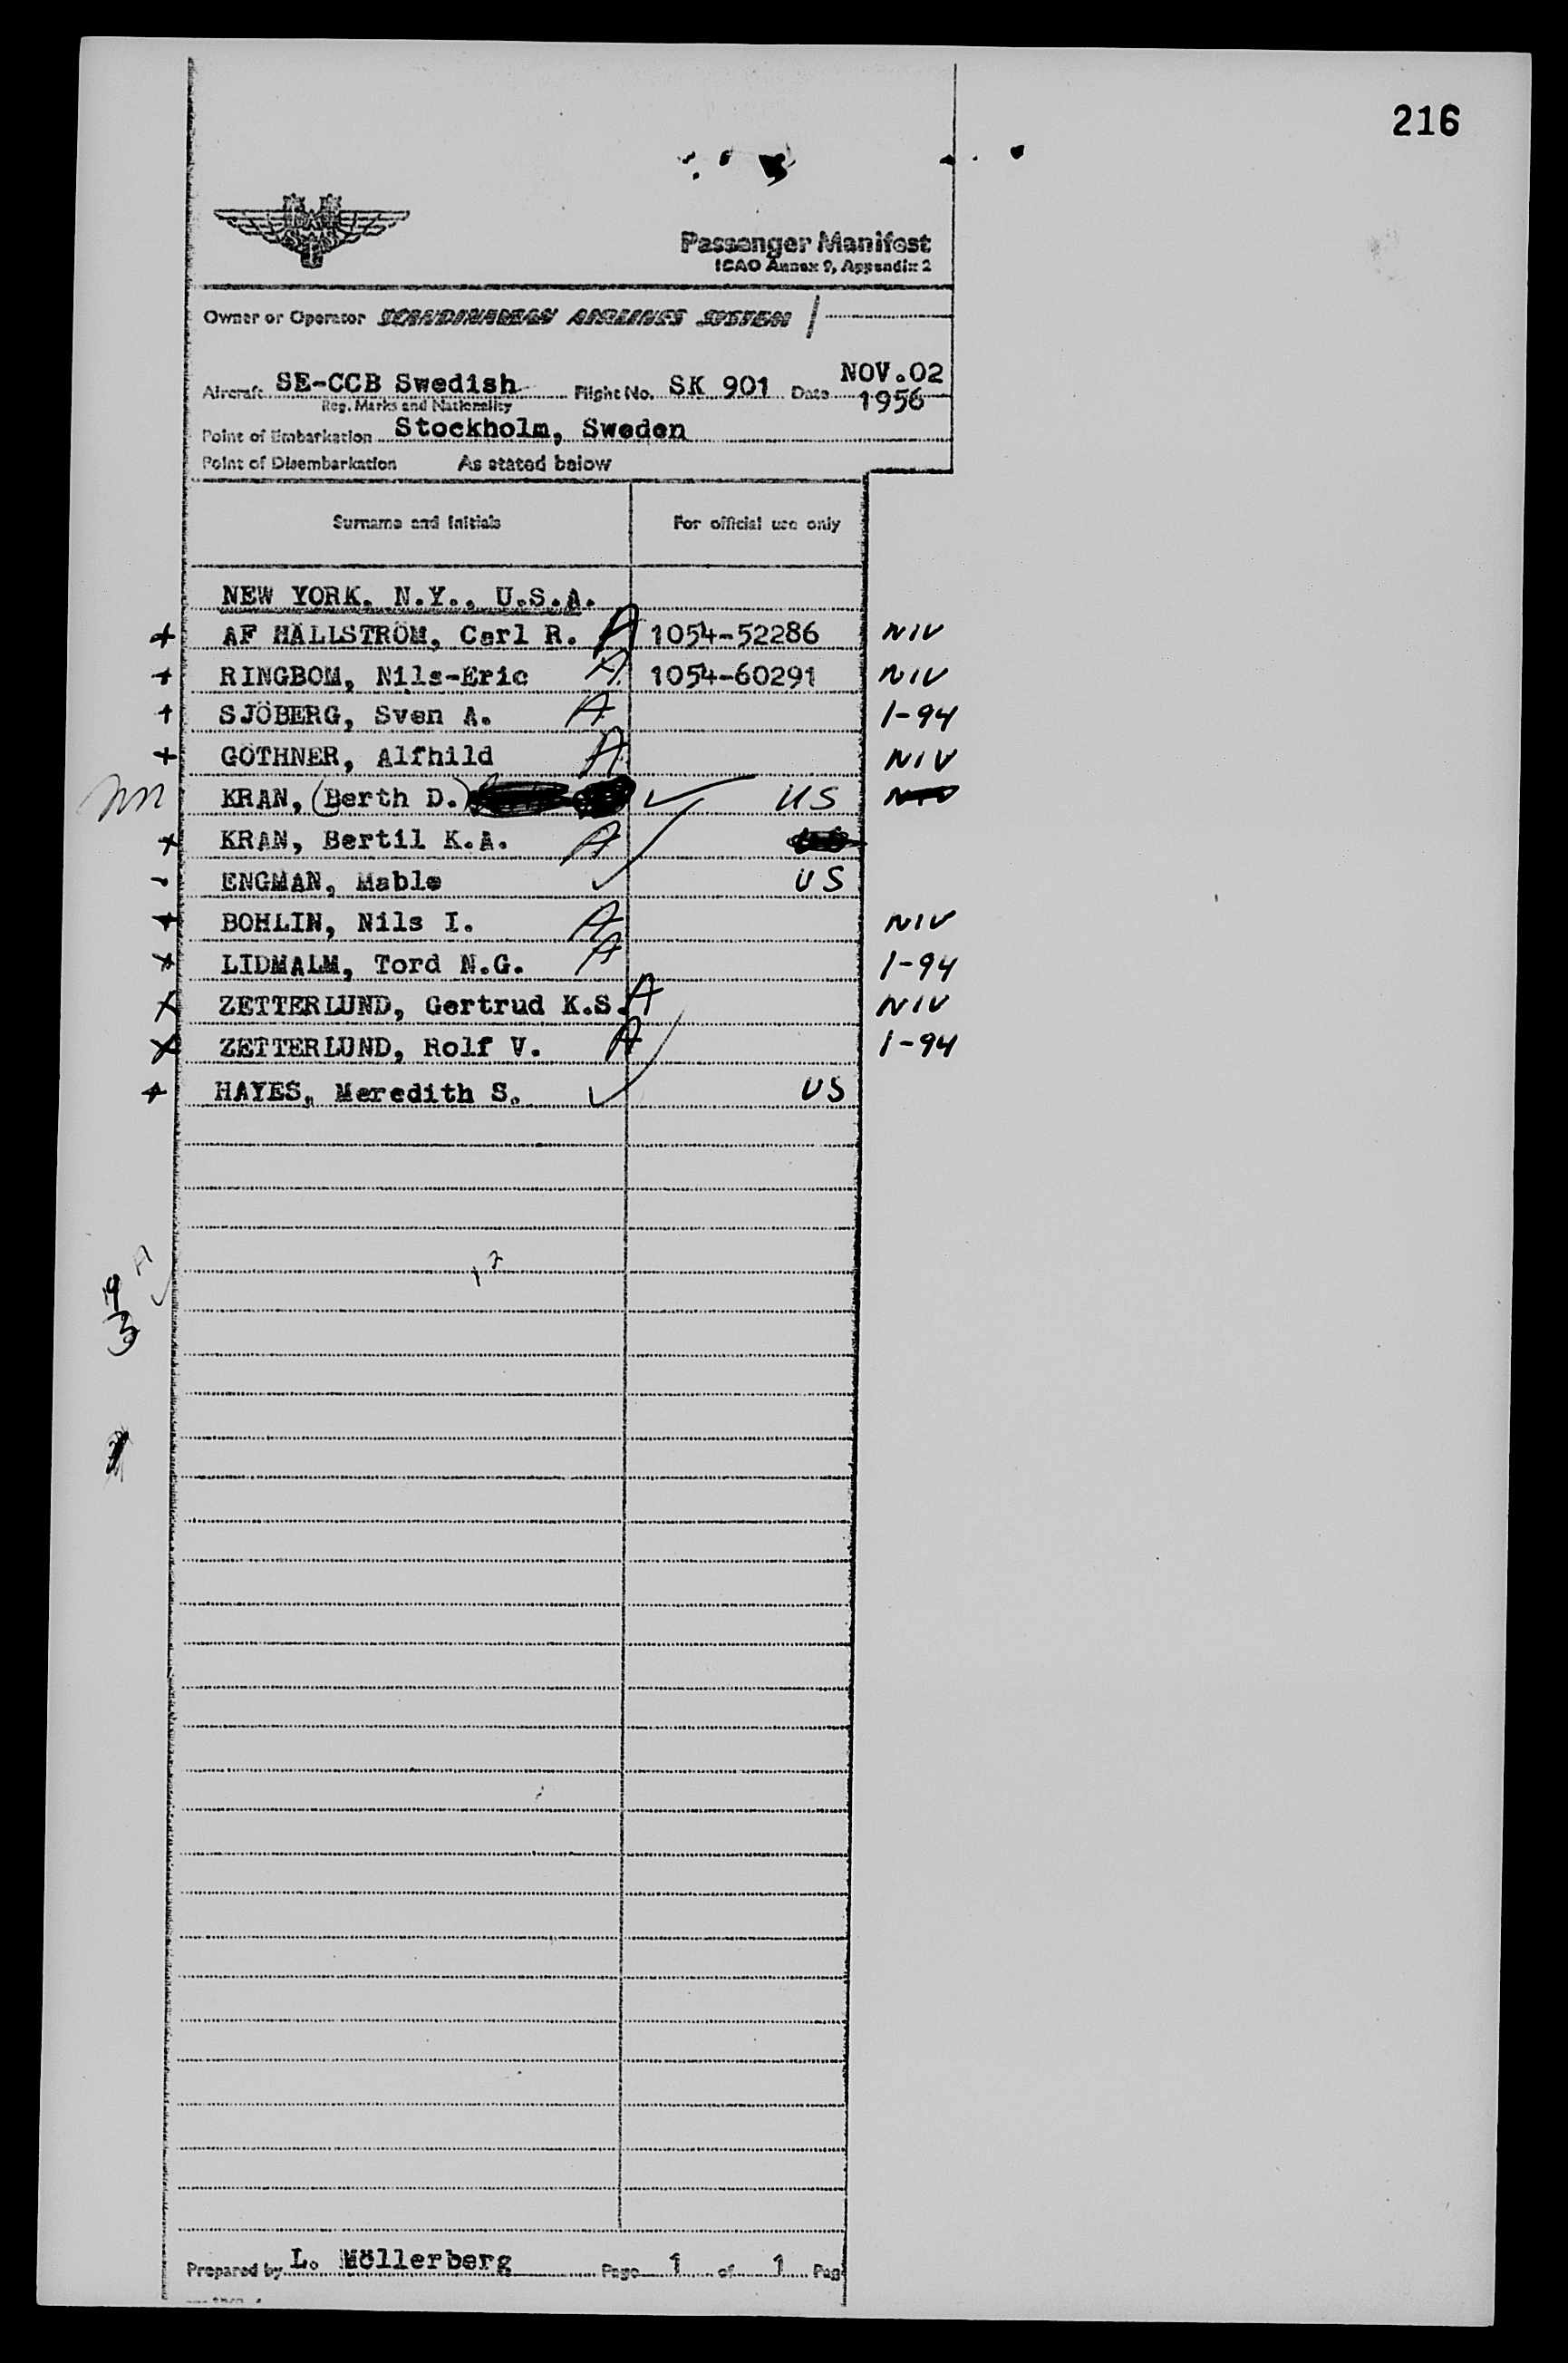 216
Passenger Manifest
ICAO Annex 9, Appendix 2
Owner or Operator SCANDINAVIAN AIRLINES SYSTEM
Aircraft SE-CCB Swedish Flight No. SK 901 Date NOV.02 1956
Reg. Marks and Nationality
Point of Embarkation Stockholm, Sweden
Point of Disembarkation As stated below
Surname and Initials For official use only
NEW YORK. N.Y., U.S.A.
+ AF HÄLLSTRÖM, Carl R. A 1054-52286 NIV
+ RINGBOM, Nils-Eric A 1054-60291 NIV
+ SJÖBERG, Sven A. A 1-94
+ GÖTHNER, Alfhild A NIV
KRAN, (Berth D.) ✓ US NIV
x KRAN, Bertil K.A. A
- ENGMAN, Mable ✓ US
+ BOHLIN, Nils I. A NIV
x LIDMALM, Tord N.G. A 1-94
x ZETTERLUND, Gertrud K.S. A NIV
x ZETTERLUND, Rolf V. A 1-94
+ HAYES, Meredith S. ✓ US
12
9 A
3 ✓
Prepared by L. Möllerberg Page 1 of 1 Pag